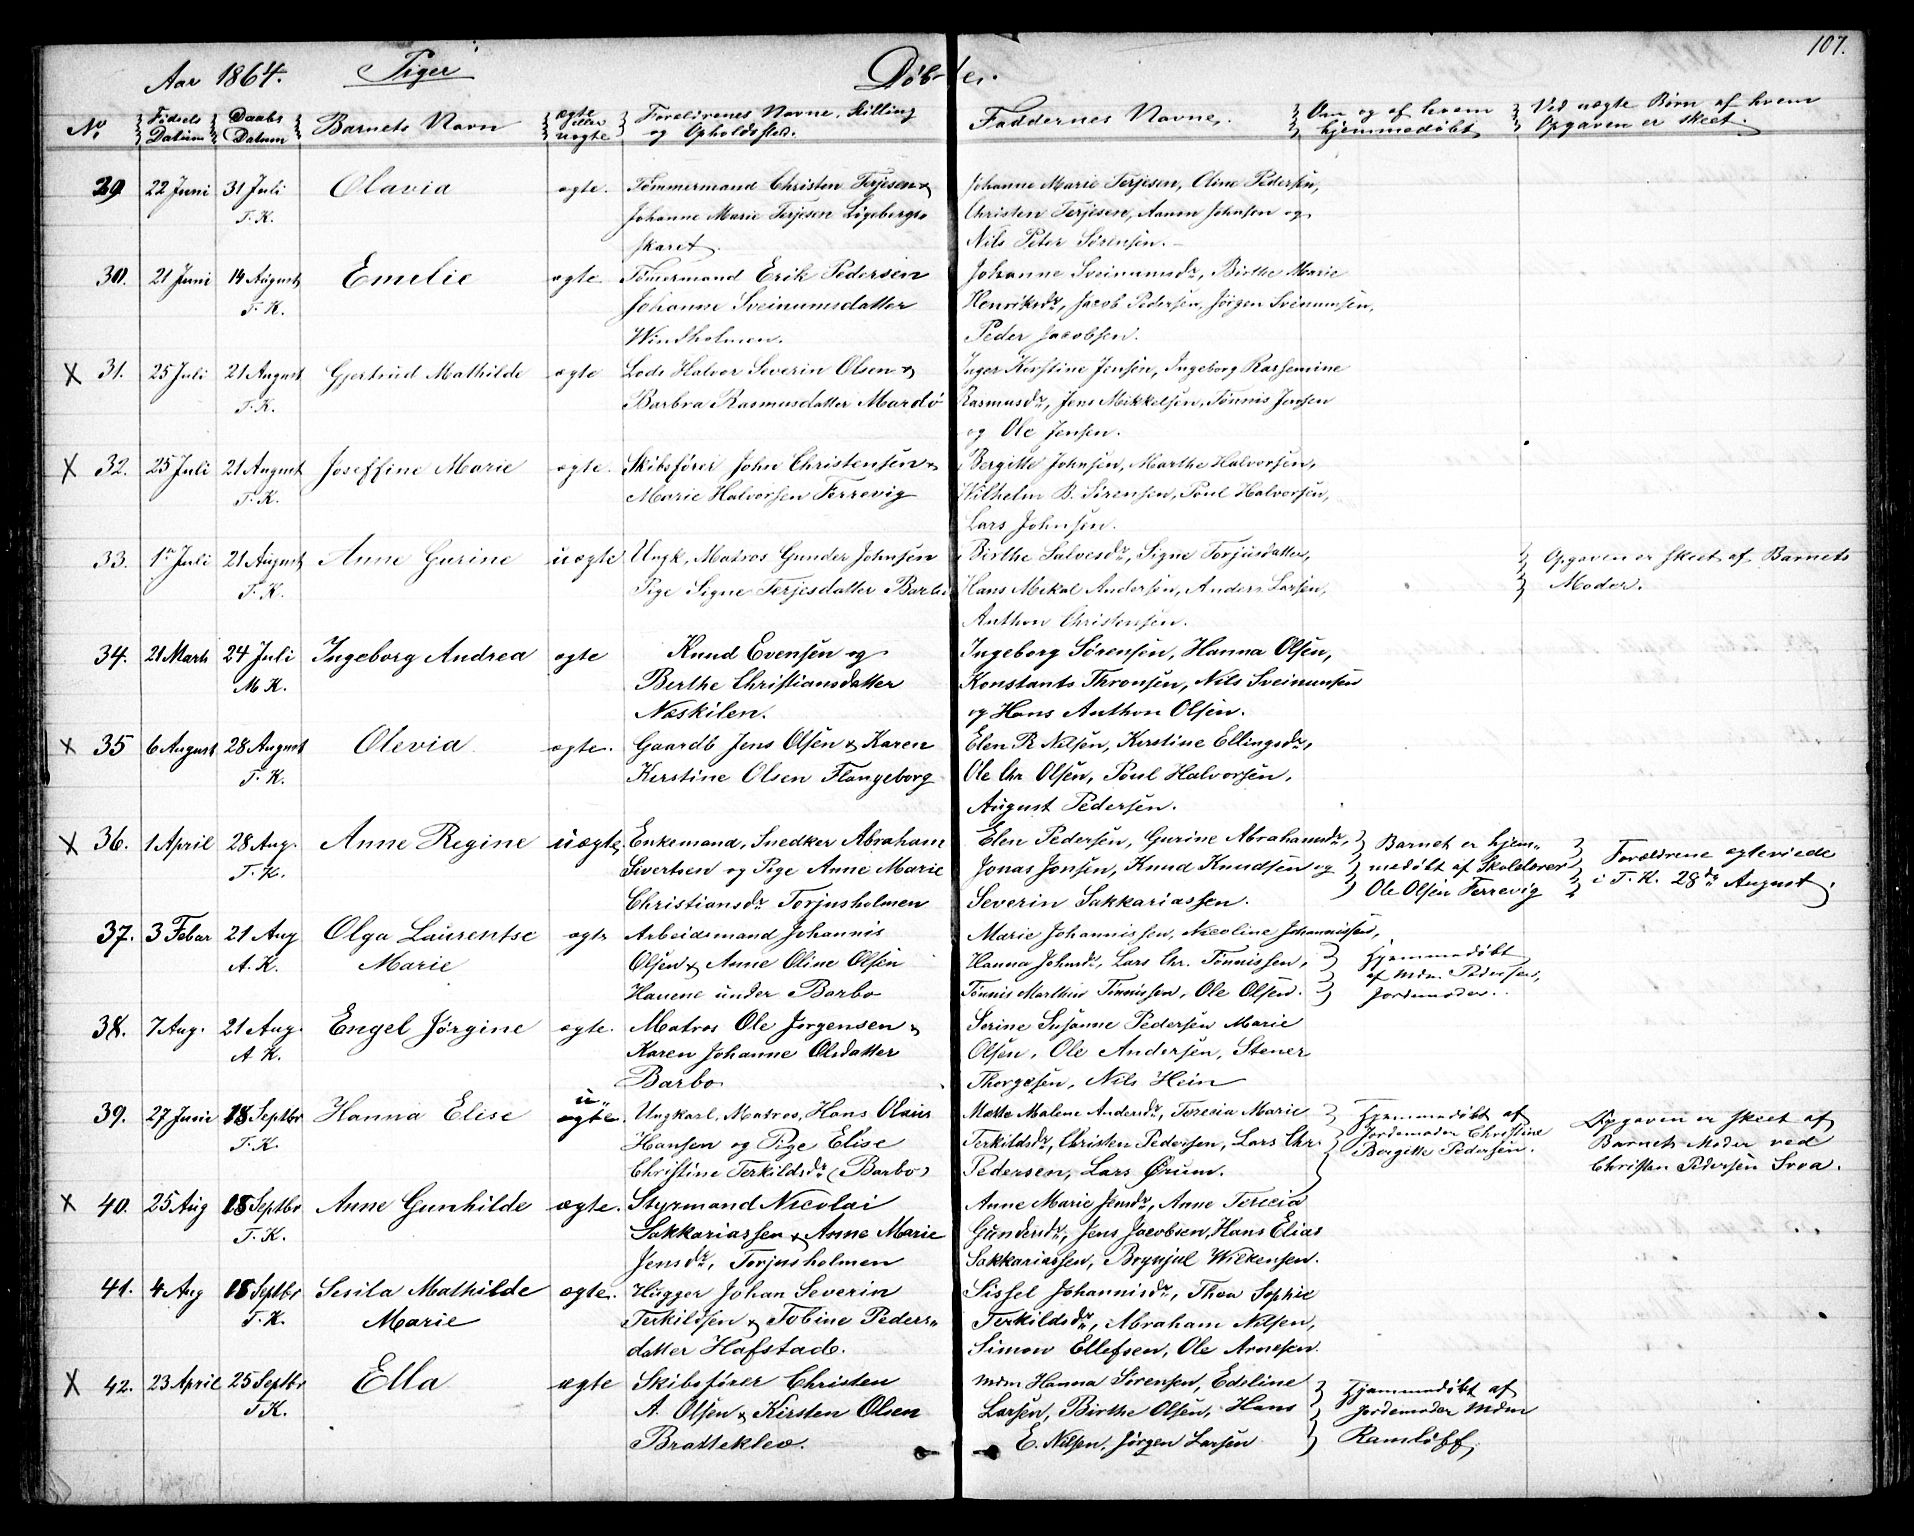 107.
Aar 1864. Piger Døbte.
No Fødsels Datum Daabs Datum Barnets Navn ægte eller uægte Forældrenes Navne, Stilling og Opholdssted. Faddernes Navne. Om og af hvem hjemmedøbt Ved uægte Børn af hvem Opgaven er skeet.
29 22 Juni 31 Juli Olavia ægte. Tømmermand Christen Terjesen & Johanne Marie Terjesen, Oline Pedersen,
T. K. Johanne Marie Terjesen Løgebergs- Christen Terjesen, Aanon Johnsen og
skaret. Nils Peter Sørensen.
30. 21 Juni 14 August Emelie ægte Tømermand Erik Pedersen Johanne Sveinumsdr, Birthe Marie
T. K. Johanne Sveinumsdatter Henriksdr, Jacob Pedersen, Jörgen Sveinumsen,
Windholmen. Peder Jacobsen.
X 31. 25 Juli 21 August Gjertrud Mathilde ægte Lods Halvor Severin Olsen & Inger Kirstine Jensen, Ingeborg Rassemine
T. K. Barbra Rasmusdatter Mardø Rasmusdr, Jens Mikkelsen, Tønnis Jensen
og Ole Jensen.
X 32. 25 Juli 21 August Joseffine Marie ægte. Skibsfører John Christensen & Bergitte Johnsen, Marthe Halvorsen,
T. K. Marie Halvorsen Ferrevig Wilhelm B. Sørensen, Poul Halvorsen,
Lars Johnsen.
33. 1st Juli 21 August Anne Gurine uægte Ungk, Matros Gunder Johnsen Birthe Salvesdr, Signe Torjusdatter, Opgaven er skeet af Barnets
T. K. Pige Signe Terjesdatter Barbo Hans Mikal Andersen, Anders Larsen, Moder.
Anthon Christensen.
34. 21 Marts 24 Juli Ingeborg Andrea ægte Knud Evensen og Ingeborg Sørensen, Hanna Olsen,
M K. Berthe Christiansdatter Konstants Thronsen, Nils Sveinunsen
Næskilen. og Hans Anthon Olsen.
X 35 6 August 28 August Olevia ægte. Gaardb Jens Olsen & Karen Elen R Nilsen, Kirstine Ellingsdr,
T. K. Kirstine Olsen Flangeborg Ole Chr Olsen, Poul Halvorsen,
August Pedersen.
X 36. 1 April 28 Aug. Anne Regine uægte, Enkemand, Snedker Abraham Elen Pedersen, Gurine Abrahamsdr, Barnet er hjem- Forældrene ægteviede
T. K. Sivertsen og Pige Anne Marie Jonas Jonsen, Knud Knudsen og medøbt af Skolelærer i T. K. 28de August.
Christiansdr Torjusholmen Severin Sakkariassen. Ole Olsen Ferrevig
37. 3 Febar 21 Aug Olga Laurentse ægte Arbeidsmand Johannis Marie Johannissen, Nicoline Johannissen,
A. K. Marie Olsen & Anne Oline Olsen Hanna Johnsdr, Lars Chr. Tønnissen, Hjemmedøbt af Mdm. Pedersen,
Havene under Barbo Tønnis Marthin Tønnissen, Ole Olsen. Jordemoder.
38. 7 Aug. 21 Aug. Engel Jørgine ægte. Matros Ole Jørgensen & Serine Susanne Pedersen Marie
A. K. Karen Johanne Olsdatter Olsen, Ole Andersen, Stener
Barbo Thorgesen, Nils Hein
39. 27 Juni 18 Septbr Hanna Elise uægte. Ungkarl, Matros, Hans Olaus Mætte Malene Andersdr, Teresia Marie Hjemmedøbt af Opgaven er skeet af
T. K. Hansen og Pige Elise Terkildsdr, Christen Pedersen, Lars Chr. Jordemoder Christine Barnets Moder ved
Christine Terkildsdr (Barbo) Pedersen, Lars Ørum. Bergitte Pedersen. Christen Pedersen Svoa.
X 40. 25 Aug 18 Septbr Anne Gunhilde ægte. Styrmand Nicolai Anne Marie Jensdr, Anne Teresia
T. K. Sakkariassen & Anne Marie Gundersdr, Jens Jacobsen, Hans Elias
Jensdr, Torjusholmen Sakkariassen, Brynjul Wilkensen.
41. 4 Aug 18 Septbr Sesila Mathilde ægte. Hugger Johan Severin Sissel Johannisdr, Thea Sophie
T. K. Marie Terkildsen & Tobine Peders- Terkildsdr, Abraham Nilsen,
datter Hafstad. Simon Ellefsen, Ole Arnesen.
X 42. 23 April 25 Septbr Ella ægte Skibsfører Christen Mdm Hanna Sørensen, Edeline Hjemmedøbt af
T K. A. Olsen & Kirsten Olsen Larsen, Birthe Olsen, Hans Jordemoder Mdm
Brattekleo. E. Nilsen, Jørgen Larsen Ramløff.